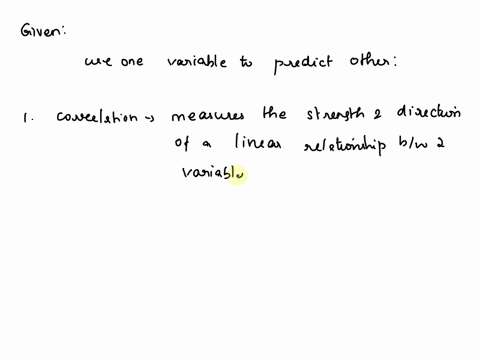 Given:
use one variable to predict other:
1. correlation → measures the strength & direction
of a linear relationship b/w 2
variable